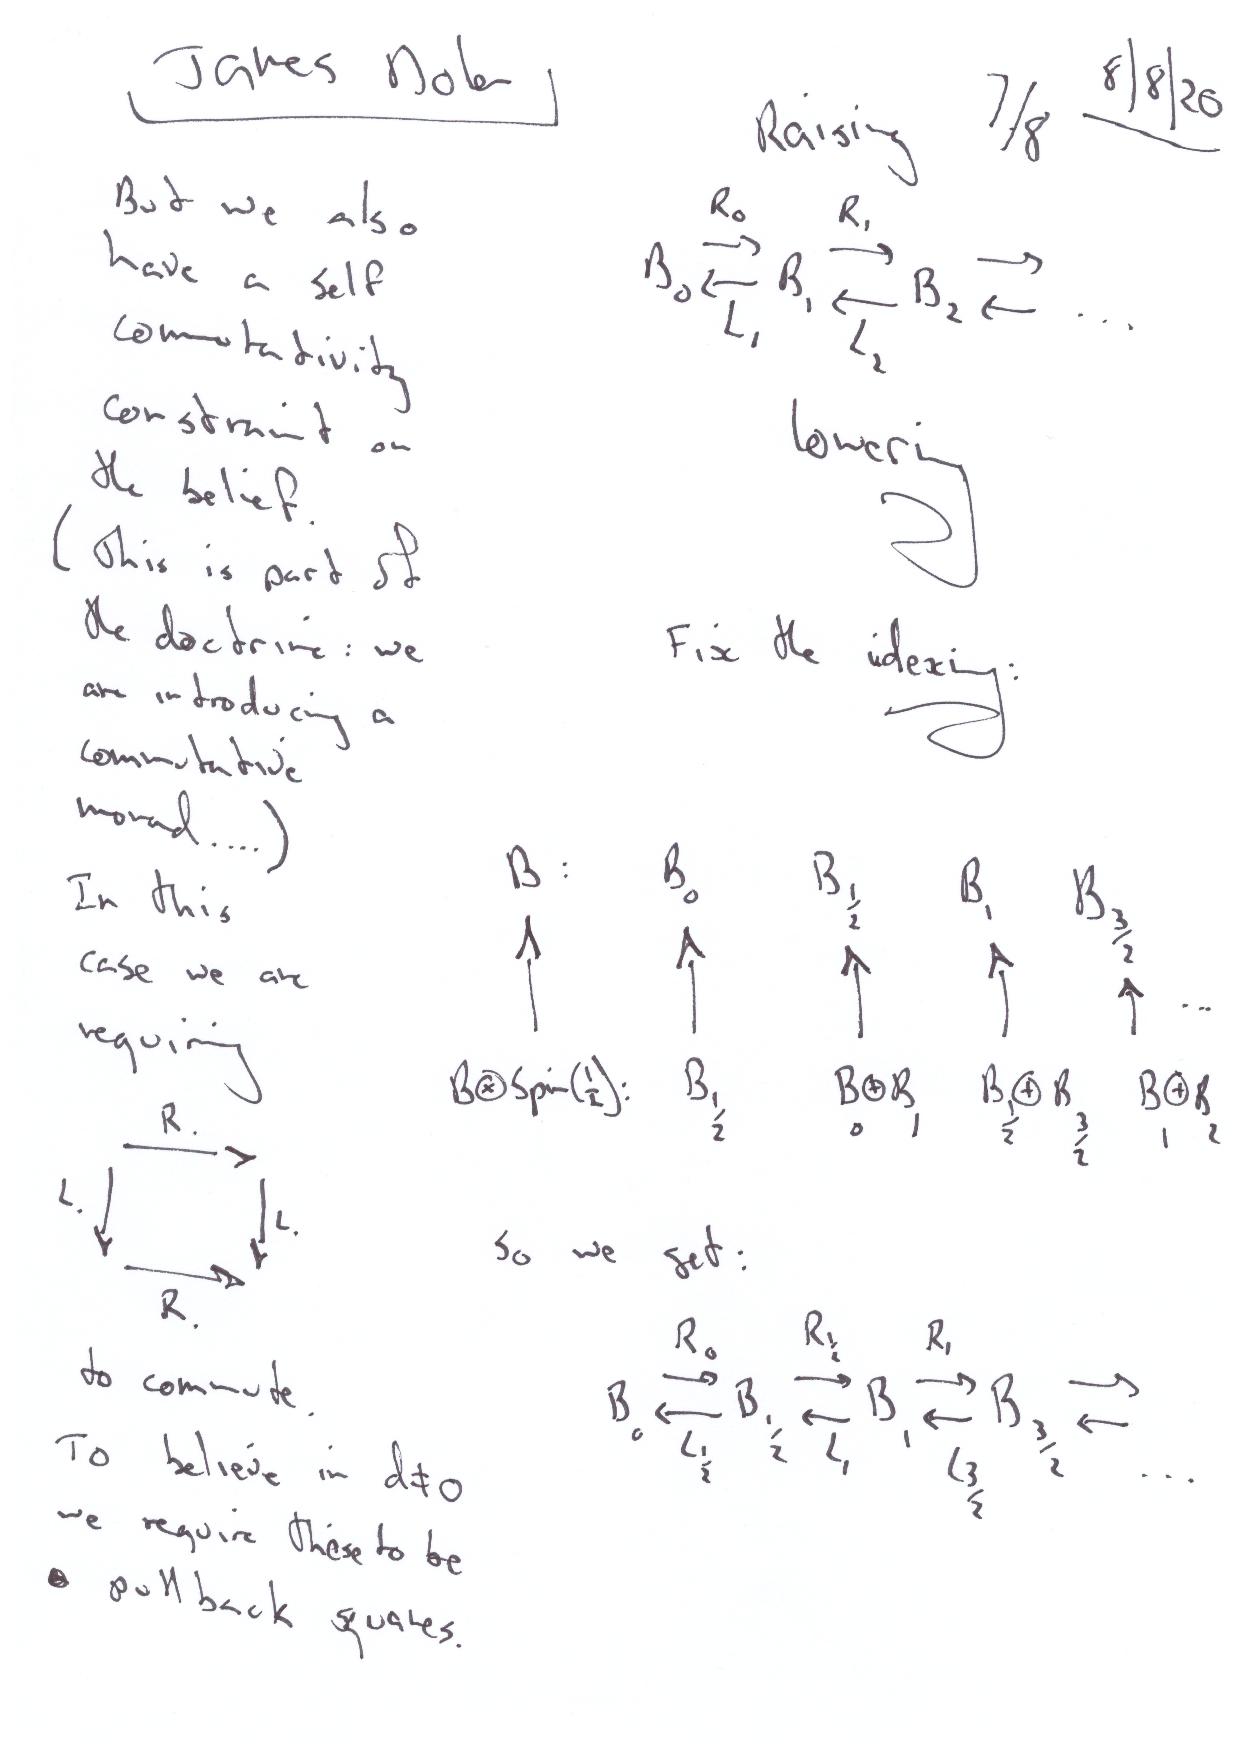 James Dolan
7/8 8/8/20
But we also
have a self
commutativity
constraint on
the belief.
(this is part of
the doctrine: we
are introducing a
commutative
monad....)
In this
case we are
requiring
R.
L. L.
R.
to commute.
To believe in d≠0
we require these to be
pullback squares.
Raising
R₀ R₁
B₀ ⇄ B₁ ⇄ B₂ ⇄ ...
L₁ L₂
lowering
Fix the indexing:
B: B₀ B_½ B₁ B_3/2
↑ ↑ ↑ ↑ ↑ ...
B⊗Spin(½): B_½ B₀⊕B₁ B_½⊕B_3/2 B₁⊕B₂
So we get:
R₀ R_½ R₁
B₀ ⇄ B_½ ⇄ B₁ ⇄ B_3/2 ⇄ ...
L_½ L₁ L_3/2